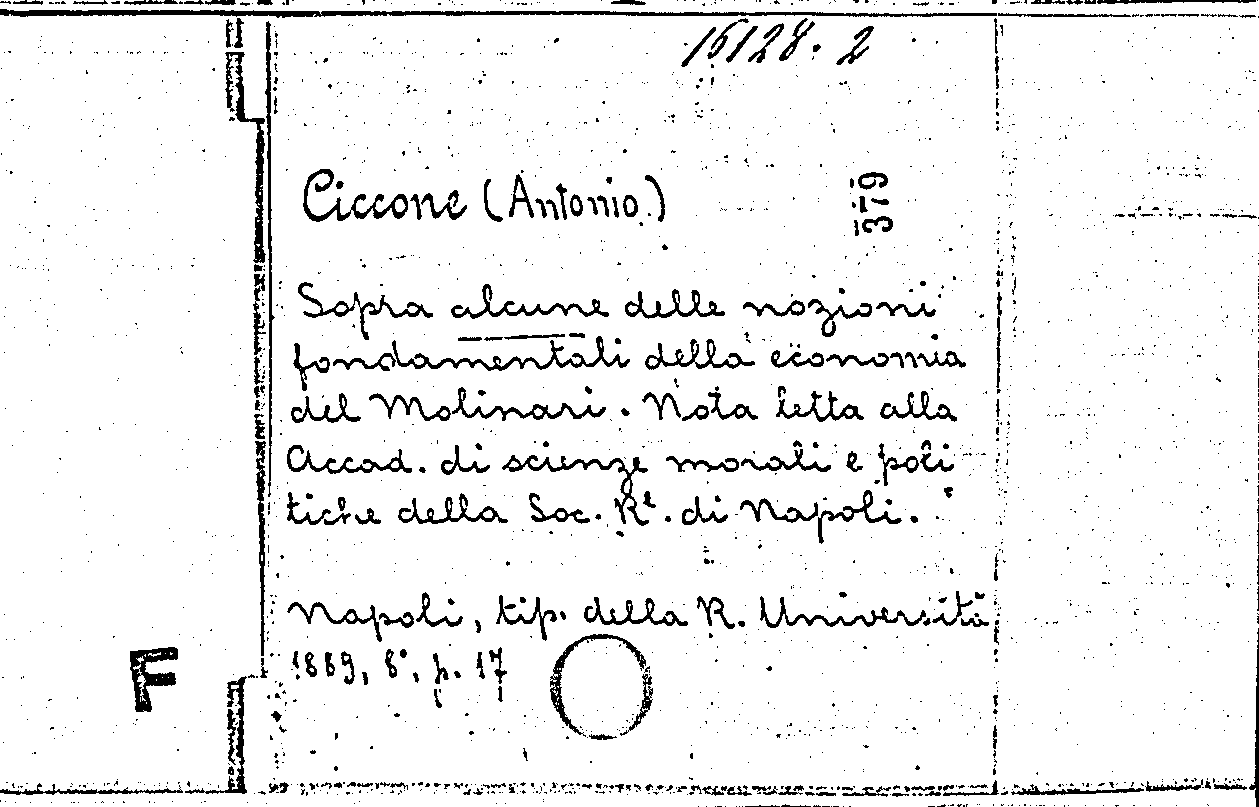 16128. 2
Ciccone (Antonio.)
379
Sopra alcune delle nozioni
fondamentali della economia
del Molinari. Nota letta alla
Accad. di scienze morali e poli
tiche della Soc. Rl. di Napoli.
Napoli, tip. della R. Università
1889, 8°, p. 17
F